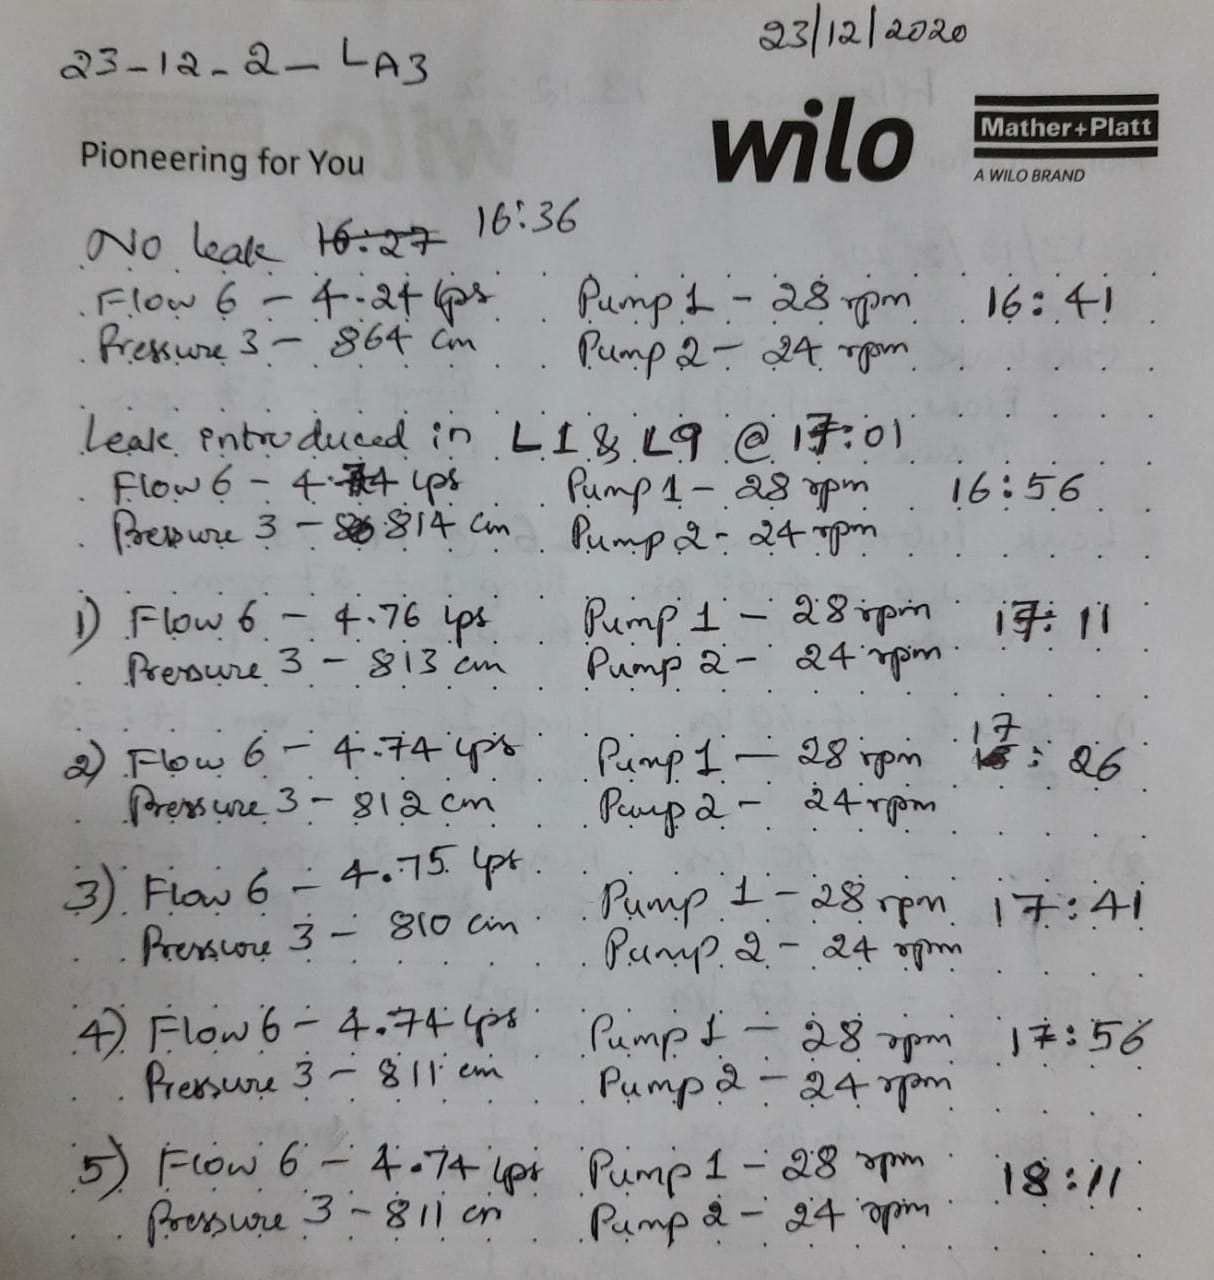 23/12/2020
23-12-2-LA3
wilo
Mather+Platt
A WILO BRAND
Pioneering for You
No leak 16:27 16:36
Flow 6 - 4.24 lps Pump 1 - 28 rpm 16:41
Pressure 3 - 864 cm Pump 2 - 24 rpm
Leak introduced in L1 & L9 @ 17:01
Flow 6 - 4.74 lps Pump 1 - 28 rpm 16:56
Pressure 3 - 814 cm Pump 2 - 24 rpm
1) Flow 6 - 4.76 lps Pump 1 - 28 rpm 17:11
Pressure 3 - 813 cm Pump 2 - 24 rpm
2) Flow 6 - 4.74 lps Pump 1 - 28 rpm 17:26
Pressure 3 - 812 cm Pump 2 - 24 rpm
3) Flow 6 - 4.75 lps Pump 1 - 28 rpm 17:41
Pressure 3 - 810 cm Pump 2 - 24 rpm
4) Flow 6 - 4.74 lps Pump 1 - 28 rpm 17:56
Pressure 3 - 811 cm Pump 2 - 24 rpm
5) Flow 6 - 4.74 lps Pump 1 - 28 rpm 18:11
Pressure 3 - 811 cm Pump 2 - 24 rpm